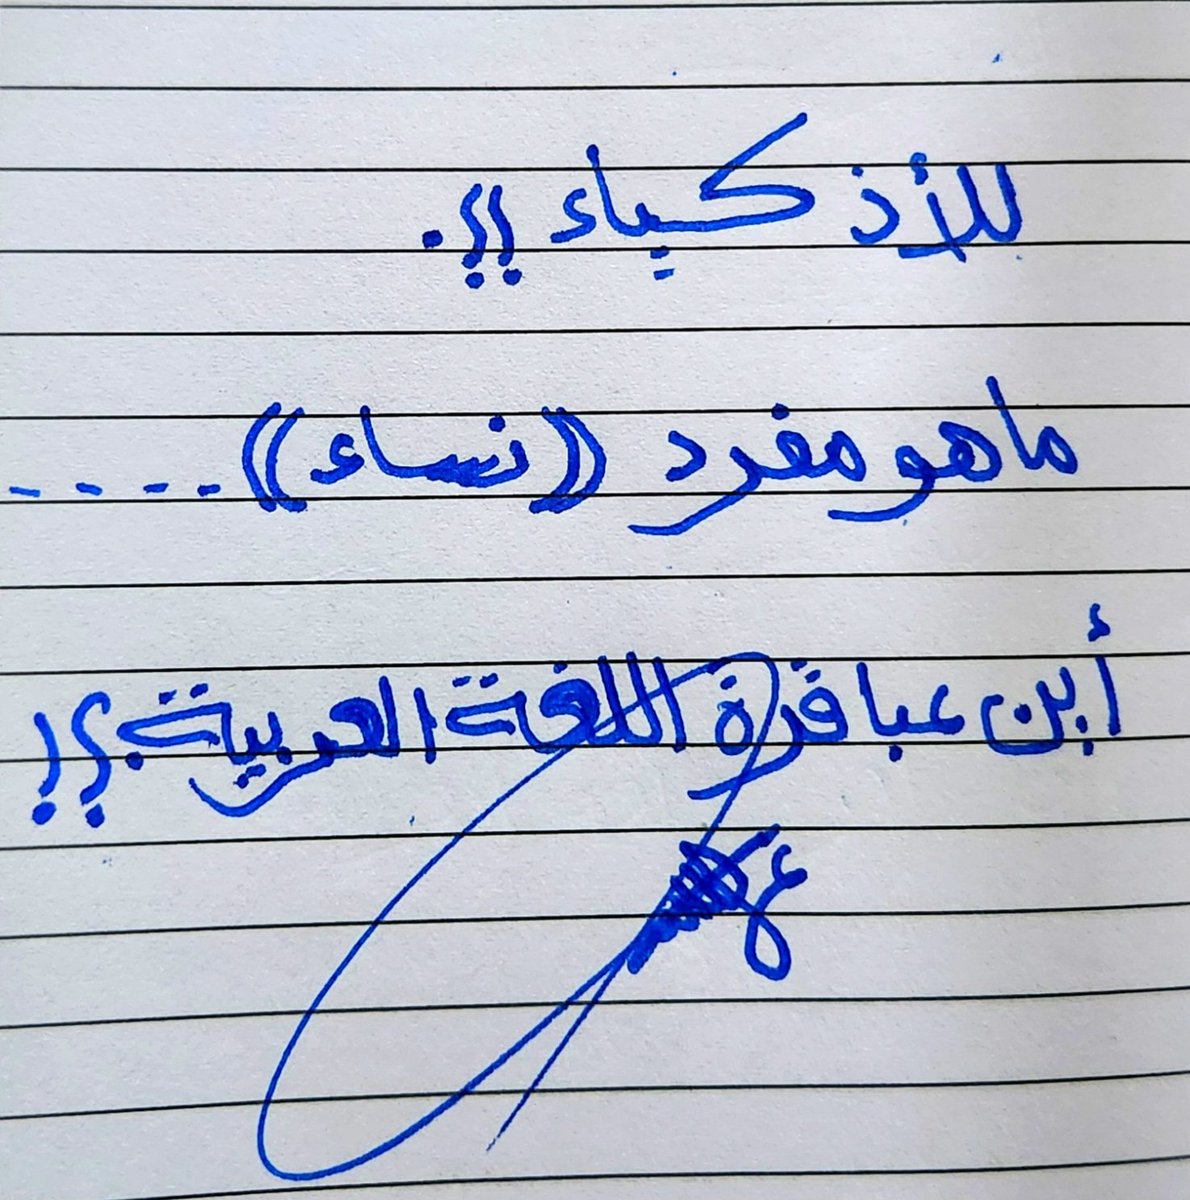 للأذكياء ؟؟.
ما هو مفرد ((نساء)) ....
أين عباقرة اللغة العربية.؟!